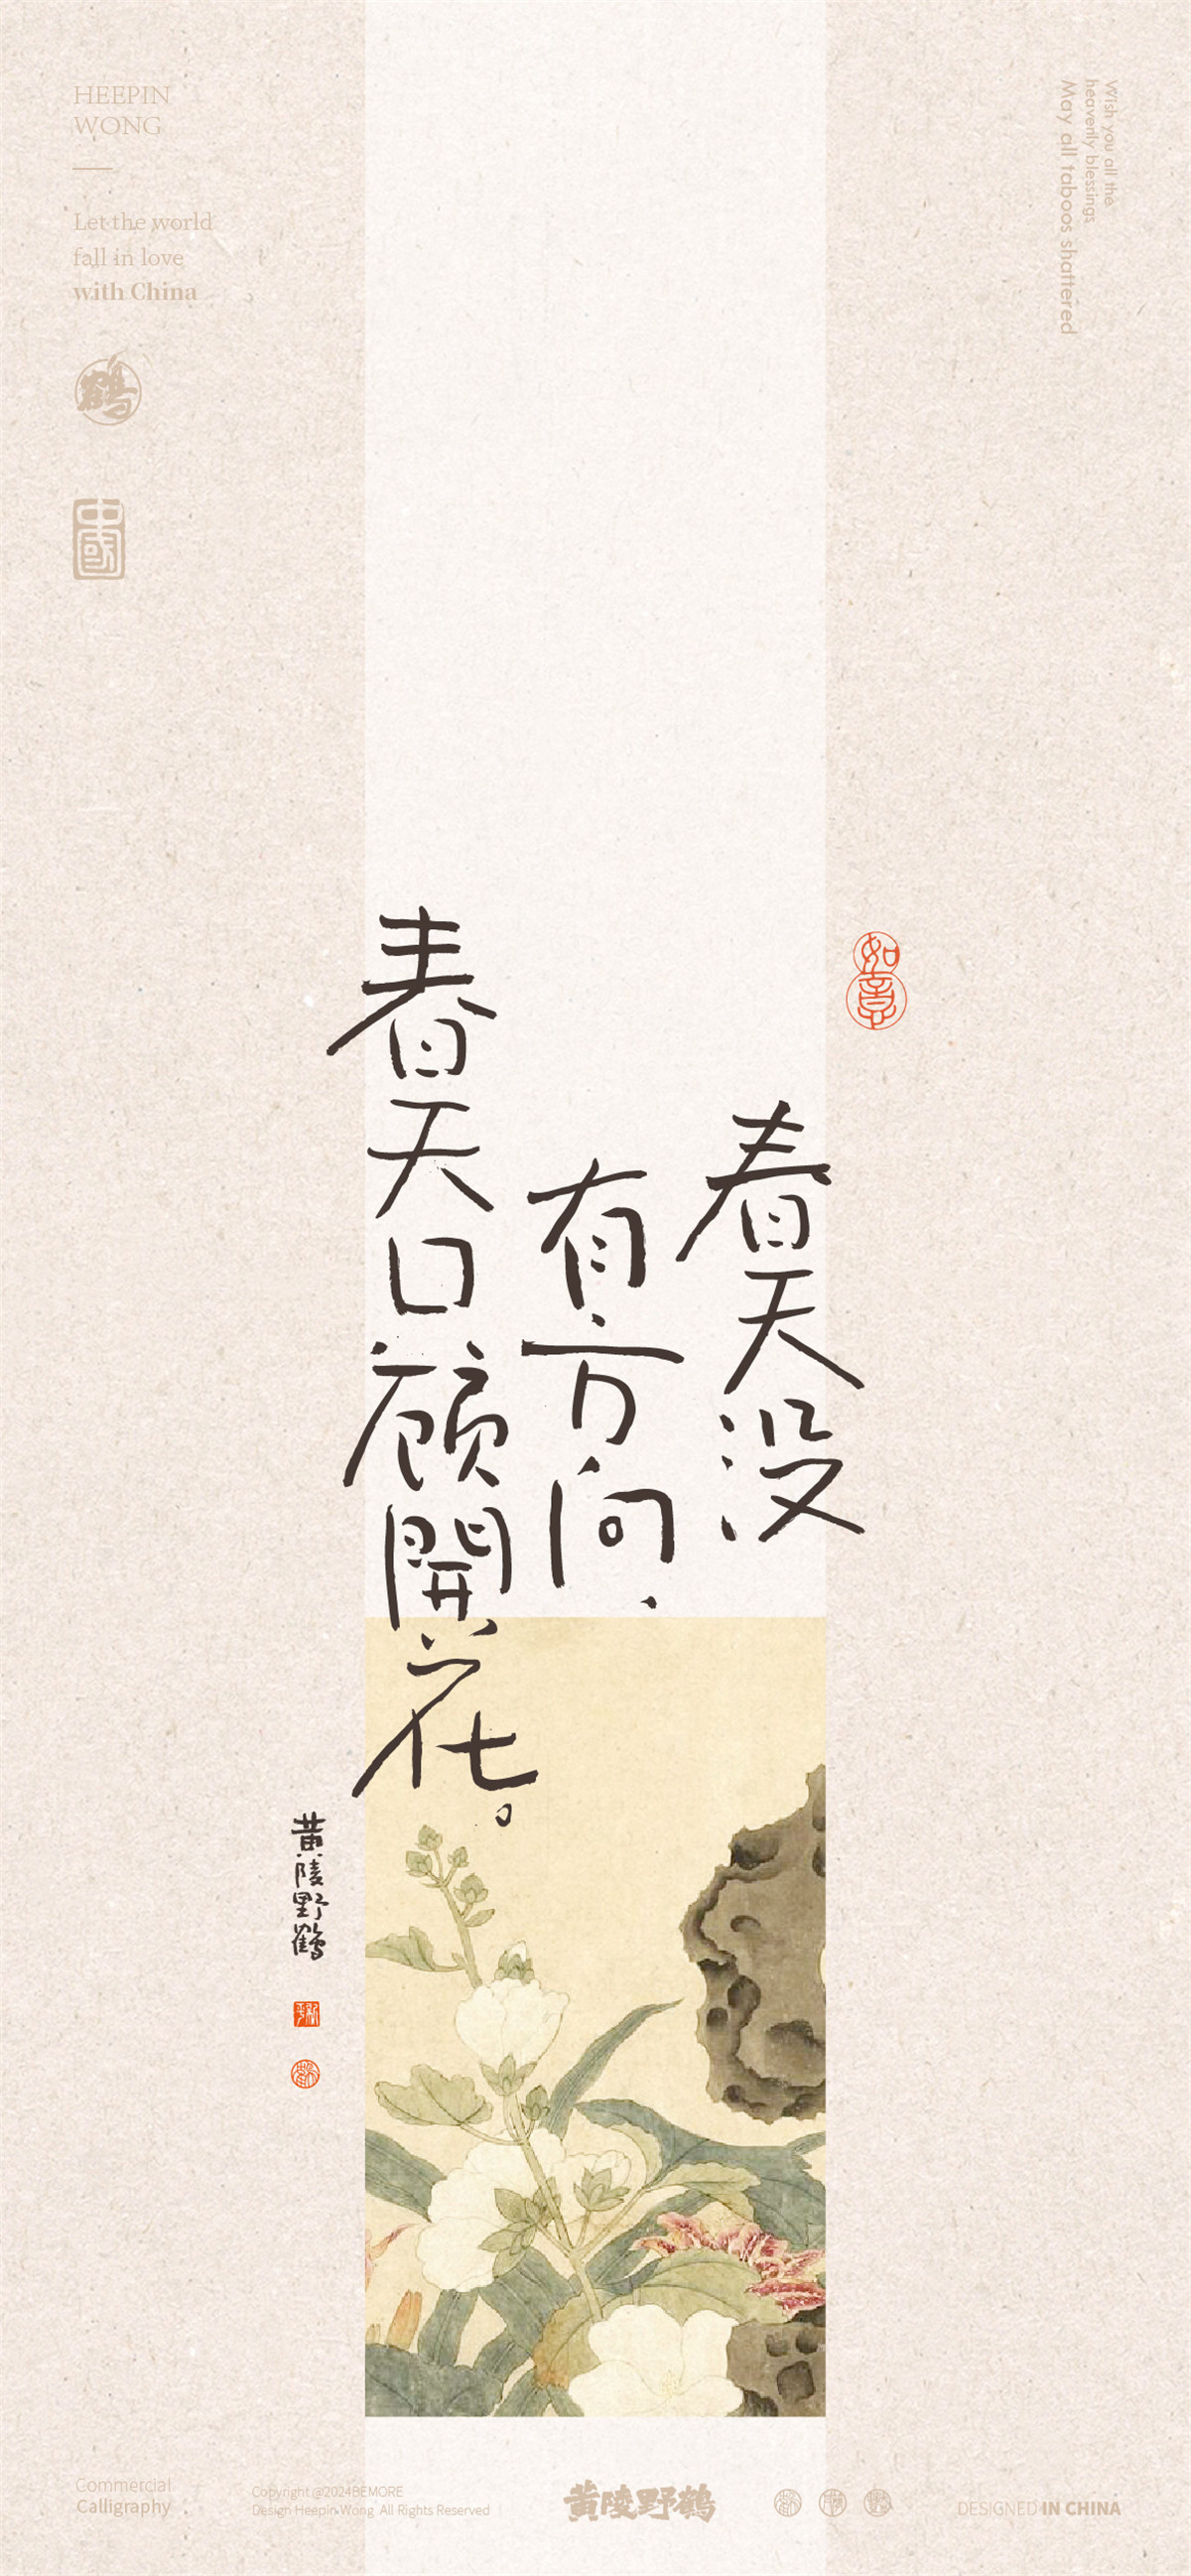 HEEPIN
WONG
Let the world
fall in love
with China
鶴
中國
Wish you all the
heavenly blessings
May all taboos shattered
如意
春天没
有方向、
春天口顧開花。
黄陵野鶴
Commercial
Calligraphy
Copyright @2024BEMORE
Design Heepin Wong All Rights Reserved
黄陵野鶴
DESIGNED IN CHINA